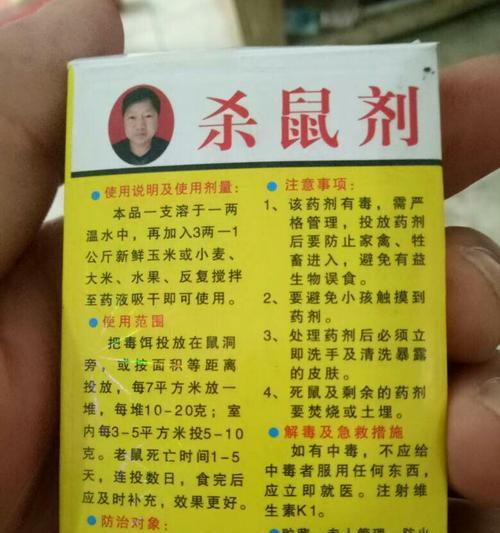 杀鼠剂
使用说明及使用剂量:
本品一支溶于一两
温水中,再加入3两一1
公斤新鲜玉米或小麦、
大米、水果、反复搅拌
至药液吸干即可使用。
使用范围
把毒饵投放在鼠洞
旁,或按面积等距离
投放,每7平方米放一
堆,每堆10-20克;室
内每3-5平方米投5-10
克。老鼠死亡时间1-5
天,连投数日,食完后
应及时补充,效果更好。
防治对象:
注意事项:
1、该药剂有毒,需严
格管理,投放药剂
后要防止家禽、牲
畜进入,避免有益
生物误食。
2、要避免小孩触摸到
药剂。
3、处理药剂后必须立
即洗手及清洗暴露
的皮肤。
4、死鼠及剩余的药剂
要焚烧或土埋。
解毒及急救措施
如有中毒,不应给
中毒者服用任何东西,
应立即就医。注射维
生素K1。